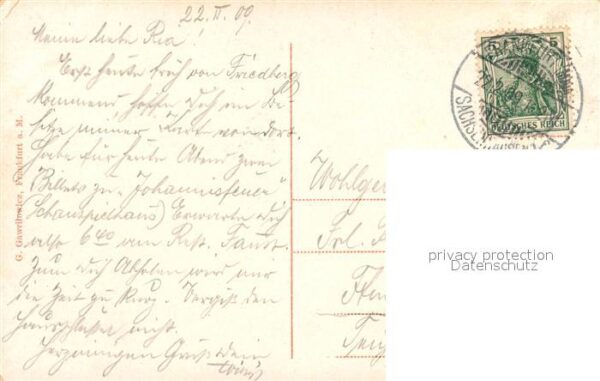 22. II. 09.
Meine liebe Ria!
Erst heute früh von Friedberg
kommend hoffe Dich im Be-
sitze meiner Karte von dort.
Habe für heute Abend zwei
Billets zu "Johannisfeuer"
(Schauspielhaus) Erwarte Dich
also 6 40 am Rest. Faust.
Zum Dich Abholen wird mir
die Zeit zu kurz. Vergiß den
Hausschlüssel nicht.
Herzinnigen Gruß Dein
G. Gawellender, Frankfurt a. M.
Wohlge
Frl.
FRANKFURT
SACHSENHAUSEN
DEUTSCHES REICH
privacy protection
Datenschutz